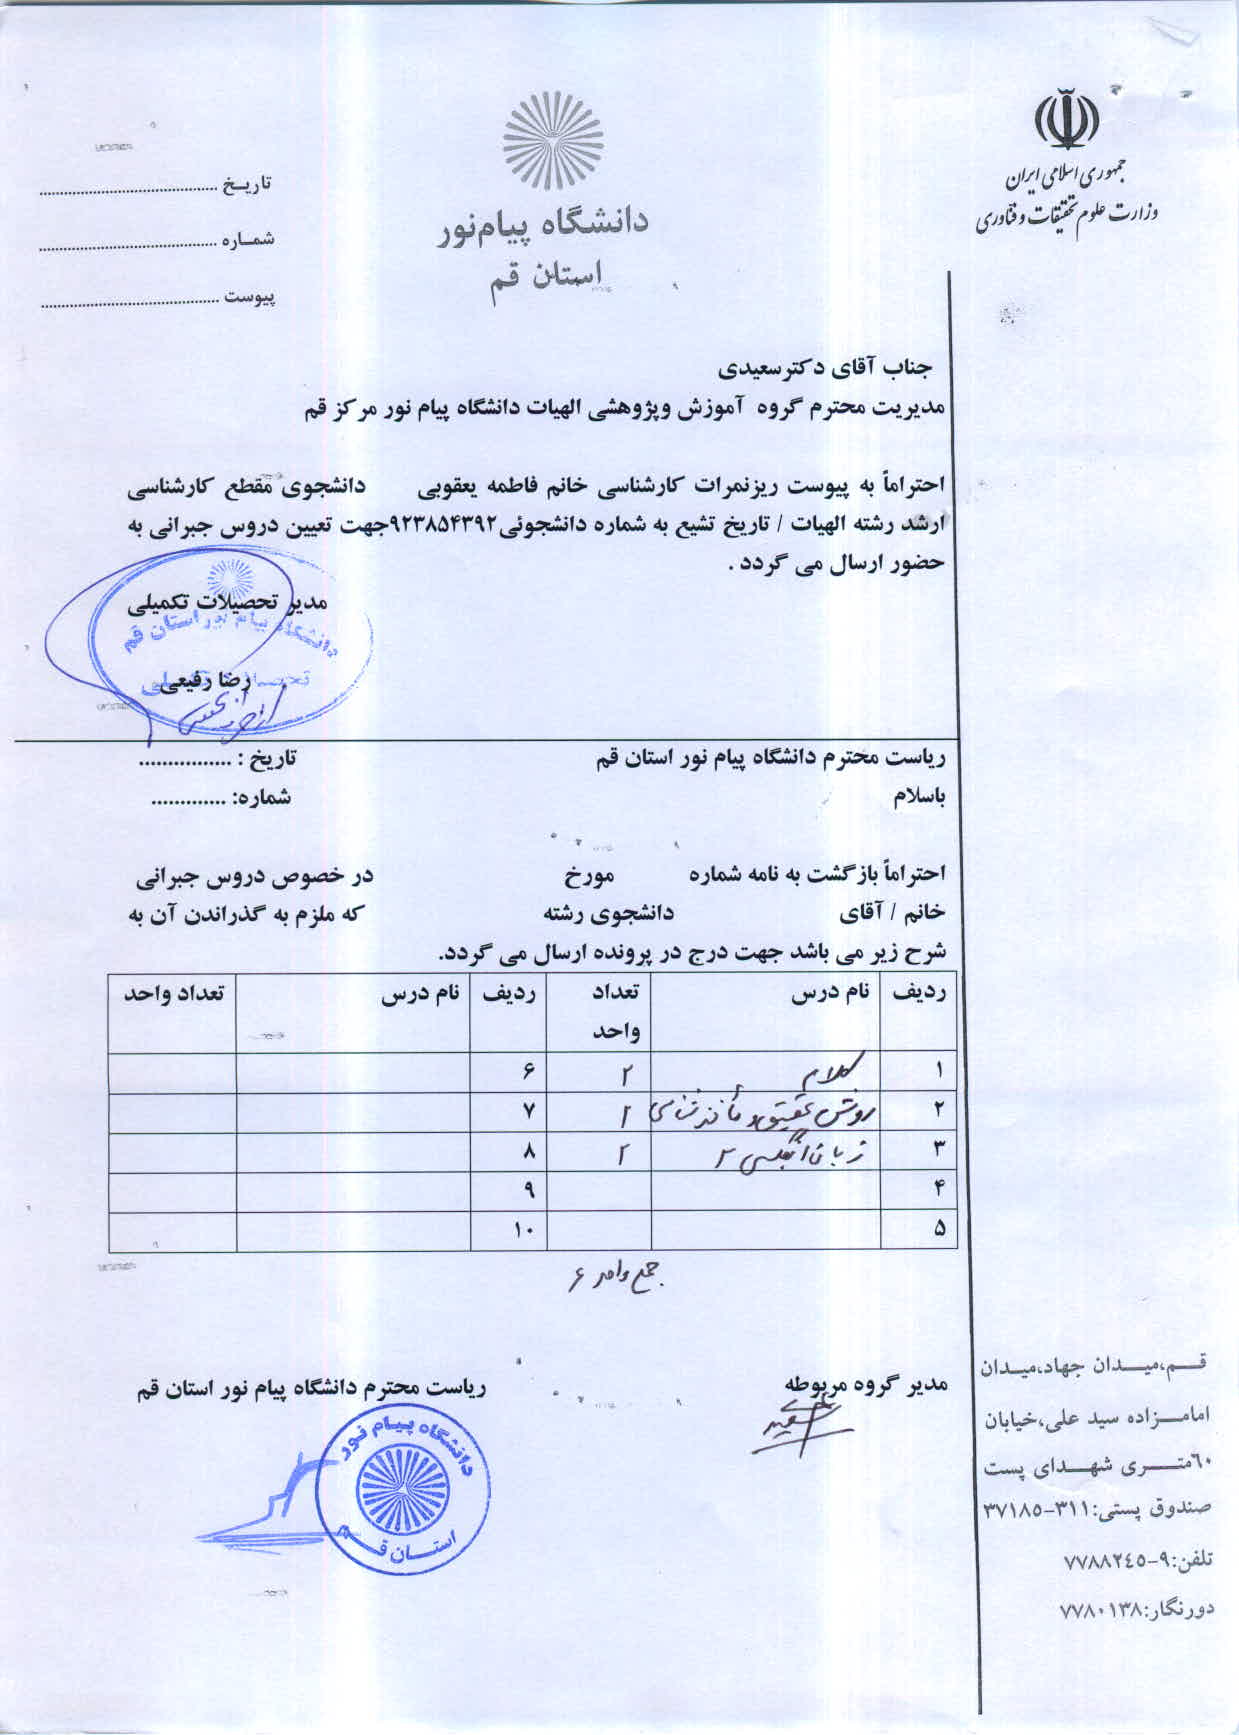 جمهوری اسلامی ایران
وزارت علوم تحقیقات و فناوری
دانشگاه پیام‌نور
استان قم
تاریـخ ............................................
شمـاره ............................................
پیوست ............................................
جناب آقای دکترسعیدی
مدیریت محترم گروه آموزش وپژوهشی الهیات دانشگاه پیام نور مرکز قم
احتراماً به پیوست ریزنمرات کارشناسی خانم فاطمه یعقوبی دانشجوی مقطع کارشناسی
ارشد رشته الهیات / تاریخ تشیع به شماره دانشجوئی۹۲۳۸۵۴۳۹۲جهت تعیین دروس جبرانی به
حضور ارسال می گردد .
مدیر تحصیلات تکمیلی
دانشگاه پیام نور استان قم
رضا رفیعی
ریاست محترم دانشگاه پیام نور استان قم تاریخ : ................
باسلام شماره: .............
احتراماً بازگشت به نامه شماره مورخ در خصوص دروس جبرانی
خانم / آقای دانشجوی رشته که ملزم به گذراندن آن به
شرح زیر می باشد جهت درج در پرونده ارسال می گردد.
ردیف نام درس تعداد واحد ردیف نام درس تعداد واحد
۱ کلام ۲ ۶
۲ روش تحقیق و مأخذشناسی ۲ ۷
۳ زبان انگلیسی ۲ ۲ ۸
۴ ۹
۵ ۱۰
جمع واحد ۶
مدیر گروه مربوطه ریاست محترم دانشگاه پیام نور استان قم
سعیدی
دانشگاه پیام نور
استان قم
قــم،میـدان جهاد،میـدان
امامـزاده سید علی،خیابان
۶۰متـری شهـدای پست
صندوق پستی:۳۱۱-۳۷۱۸۵
تلفن:۹-۷۷۸۸۲۴۵
دورنگار:۷۷۸۰۱۳۸